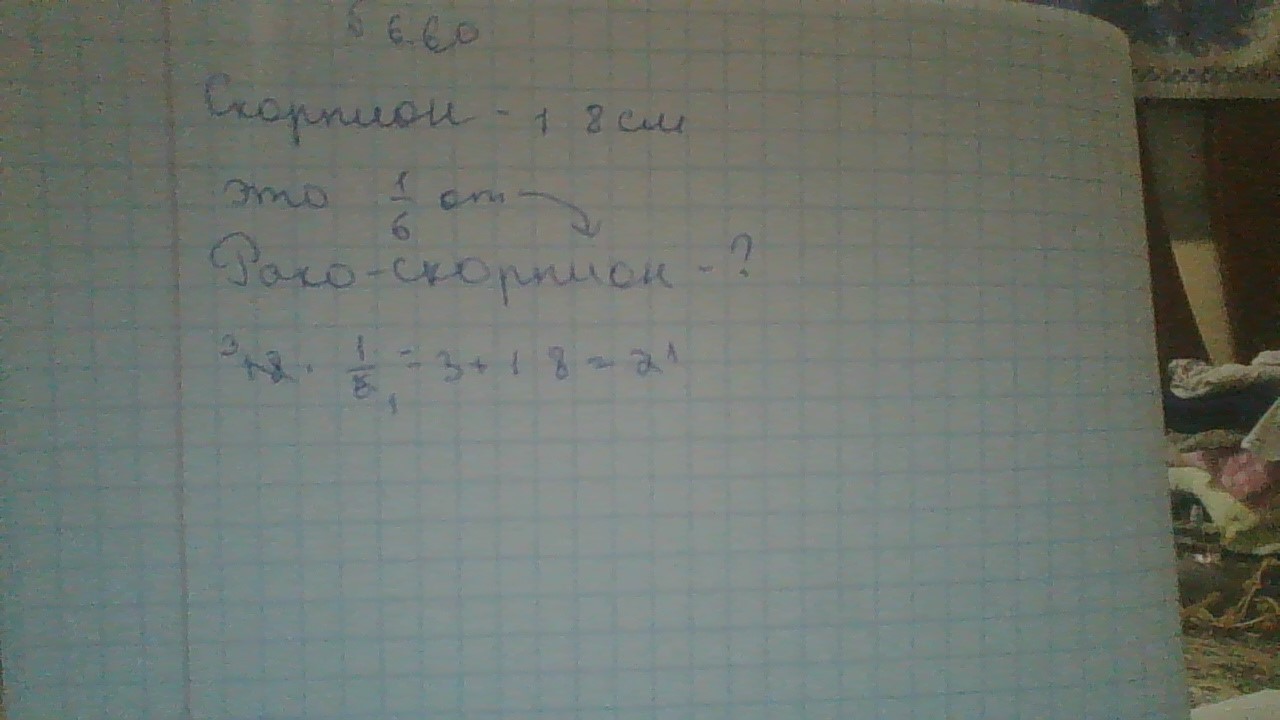 6.60
Скорпион - 18 см
это 1/6 от
Рако-скорпион - ?
3 18 · 1/6 1 = 3 + 18 = 21